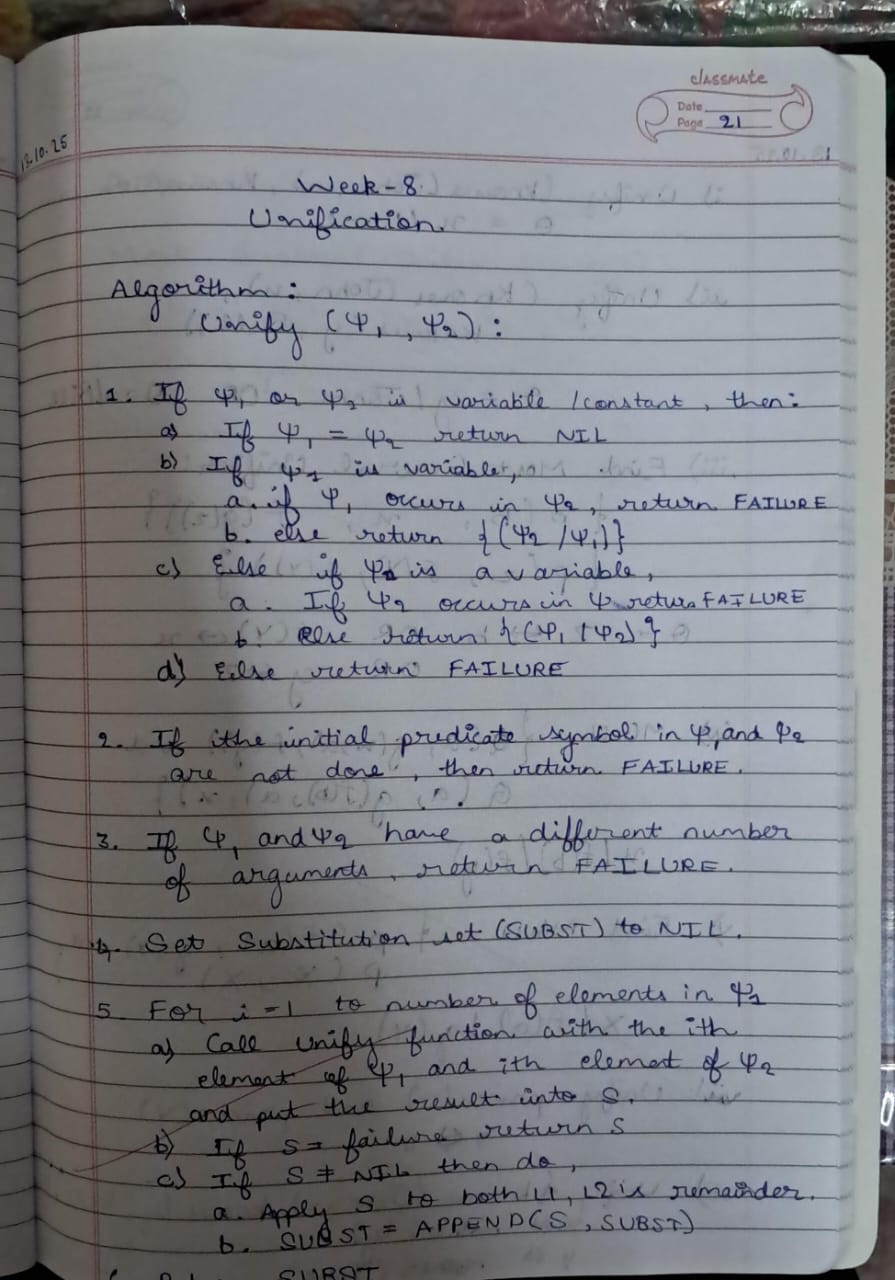 classmate
Date
Page 21
13.10.25
Week - 8.
Unification.
Algorithm :
Unify (Ψ1, Ψ2) :
1. If Ψ1 or Ψ2 is variable / constant, then:
a) If Ψ1 = Ψ2 return NIL
b) If Ψ1 is variable,
a. if Ψ1 occurs in Ψ2, return FAILURE
b. else return {(Ψ2 / Ψ1)}
c) Else if Ψ2 is a variable,
a. If Ψ2 occurs in Ψ return FAILURE
b. Else return {(Ψ1 / Ψ2)}
d) Else return FAILURE
2. If the initial predicate symbol in Ψ1 and Ψ2
are not done, then return FAILURE.
3. If Ψ1 and Ψ2 have a different number
of arguments, return FAILURE.
4. Set Substitution set (SUBST) to NIL.
5. For i = 1 to number of elements in Ψ1
a) Call unify function with the ith
element of Ψ1 and ith elemet of Ψ2
and put the result into S.
b) If S = failure return S
c) If S ≠ NIL then do,
a. Apply S to both L1, L2 is remainder.
b. SUBST = APPEND(S, SUBST)
SUBST